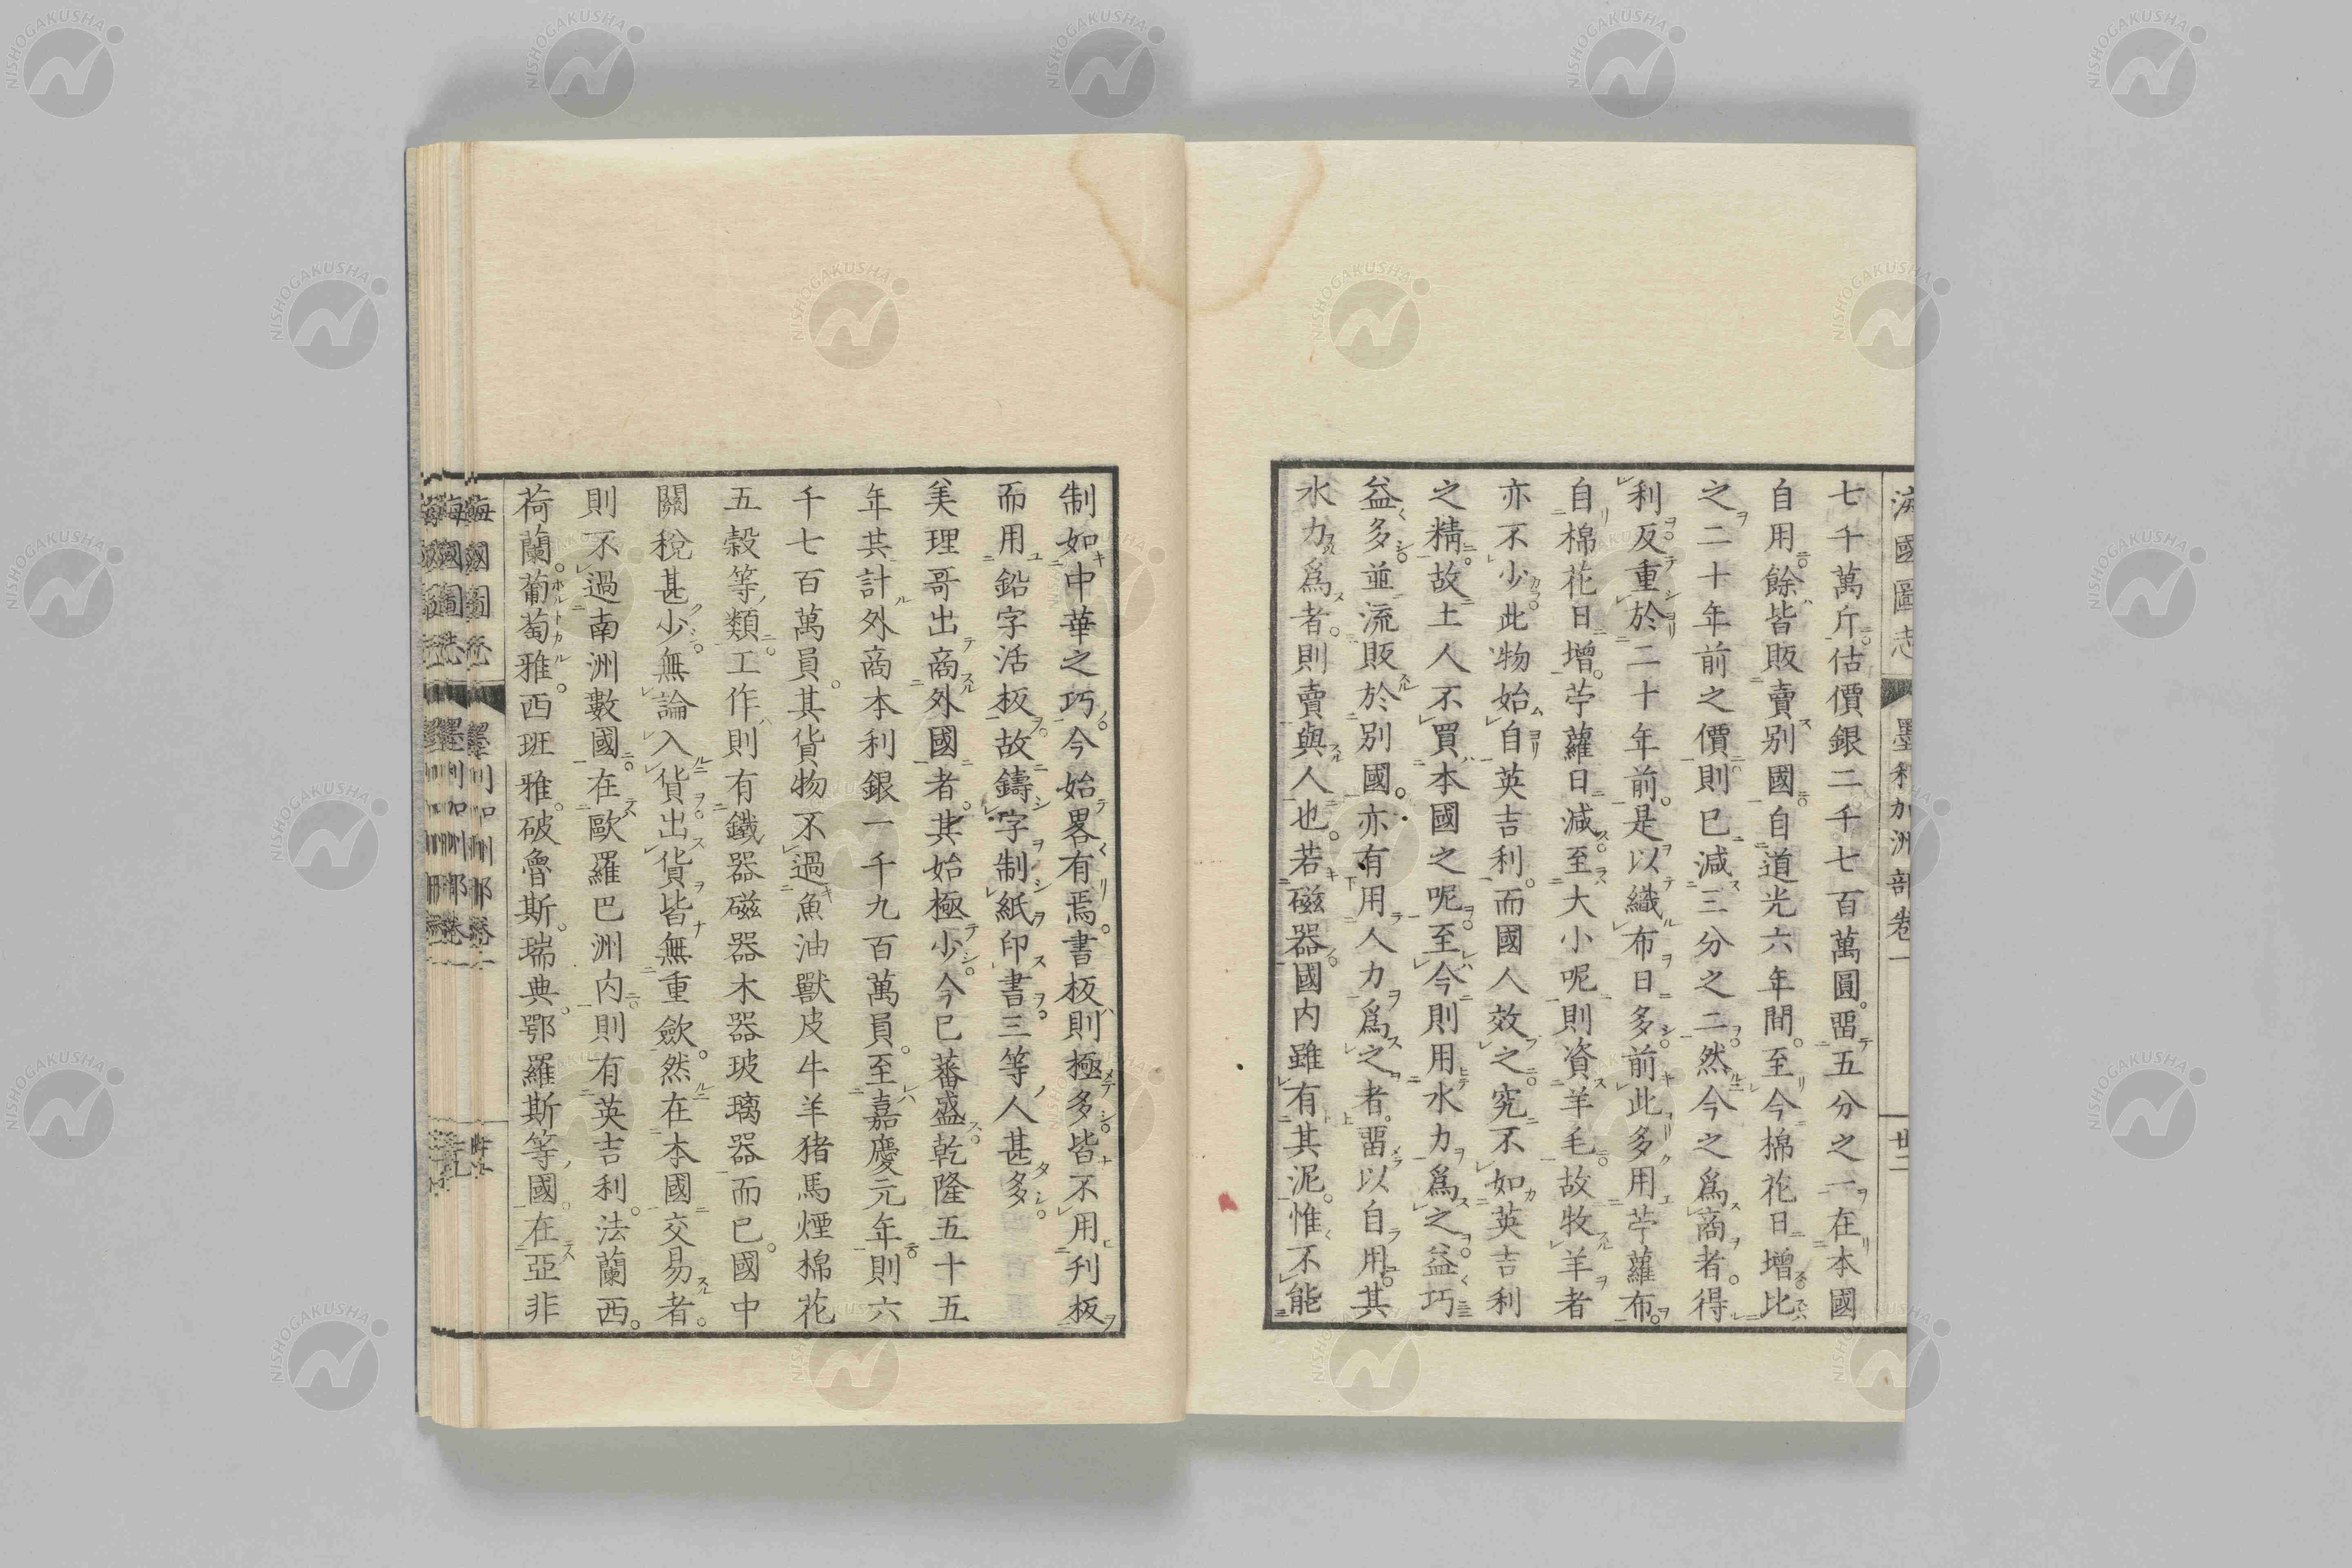 海國圖志 墨利加洲部卷一 廿二
七千萬斤。估價銀二千七百萬圓。畱五分之一在本國
自用。餘皆販賣別國。自道光六年間。至今棉花日增。比
之二十年前之價。則已減三分之二。然今之爲商者。得
利反重於二十年前。是以織布日多。前此多用苧蘿布。
自棉花日增。苧蘿日減。至大小呢則資羊毛。故牧羊者
亦不少。此物始自英吉利。而國人效之。究不如英吉利
之精。故土人不買本國之呢。至今則用水力爲之。益巧
益多。並流販於別國。亦有用人力爲之者。畱以自用。其
水力爲者。則賣與人也。若磁器國內雖有其泥。惟不能
制如中華之巧。今始畧有焉。書板則極多。皆不用刋板
而用鉛字活板。故鑄字制紙印書三等人甚多。
美理哥出商外國者。其始極少。今已蕃盛。乾隆五十五
年共計外商本利銀一千九百萬員。至嘉慶元年。則六
千七百萬員。其貨物不過魚油獸皮牛羊猪馬煙棉花
五穀等類。工作則有鐵器磁器木器玻璃器而已。國中
關稅甚少。無論入貨出貨皆無重斂。然在本國交易者。
則不過南洲數國。在歐羅巴洲內。則有英吉利。法蘭西。
荷蘭。葡萄雅。西班雅。破魯斯。瑞典。鄂羅斯等國。在亞非